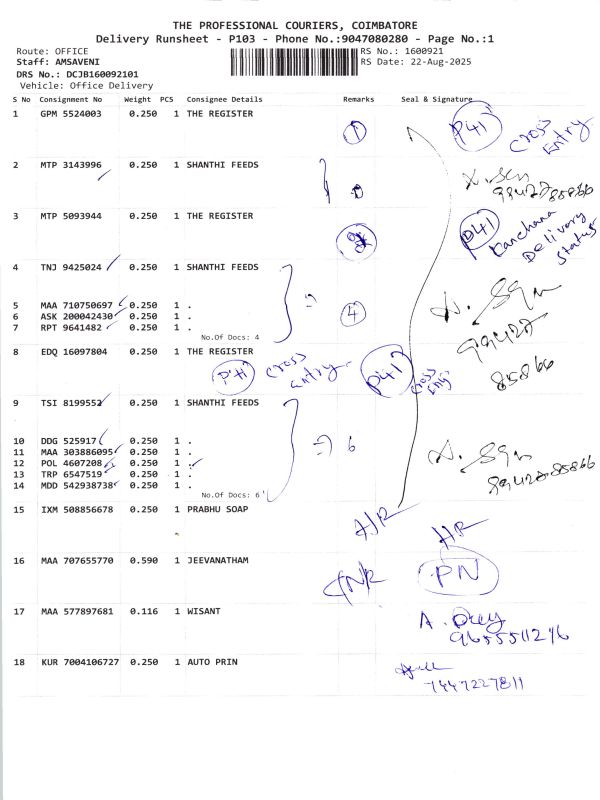 THE PROFESSIONAL COURIERS, COIMBATORE
Delivery Runsheet - P103 - Phone No.:9047080280 - Page No.:1
Route: OFFICE
RS No.: 1600921
Staff: AMSAVENI
RS Date: 22-Aug-2025
DRS No.: DCJB160092101
Vehicle: Office Delivery
S No Consignment No Weight PCS Consignee Details Remarks Seal & Signature
1 GPM 5524003 0.250 1 THE REGISTER 1 P41 Cross Entry
2 MTP 3143996 0.250 1 SHANTHI FEEDS
99427 85866
3 MTP 5093944 0.250 1 THE REGISTER P41 Kanchana Delivery Status
4 TNJ 9425024 0.250 1 SHANTHI FEEDS
5 MAA 710750697 0.250 1 . 4
6 ASK 200042430 0.250 1 .
7 RPT 9641482 0.250 1 .
99427
85866
No.Of Docs: 4
8 EDQ 16097804 0.250 1 THE REGISTER
P41 Cross Entry P41 Cross
9 TSI 8199552 0.250 1 SHANTHI FEEDS
10 DDG 525917 0.250 1 . 6
11 MAA 303886095 0.250 1 .
12 POL 4607208 0.250 1 .
13 TRP 6547519 0.250 1 .
14 MDD 542938738 0.250 1 .
99427 85866
No.Of Docs: 6
15 IXM 508856678 0.250 1 PRABHU SOAP
16 MAA 707655770 0.590 1 JEEVANATHAM PN
17 MAA 577897681 0.116 1 WISANT
9655511276
18 KUR 7004106727 0.250 1 AUTO PRIN
7447227811